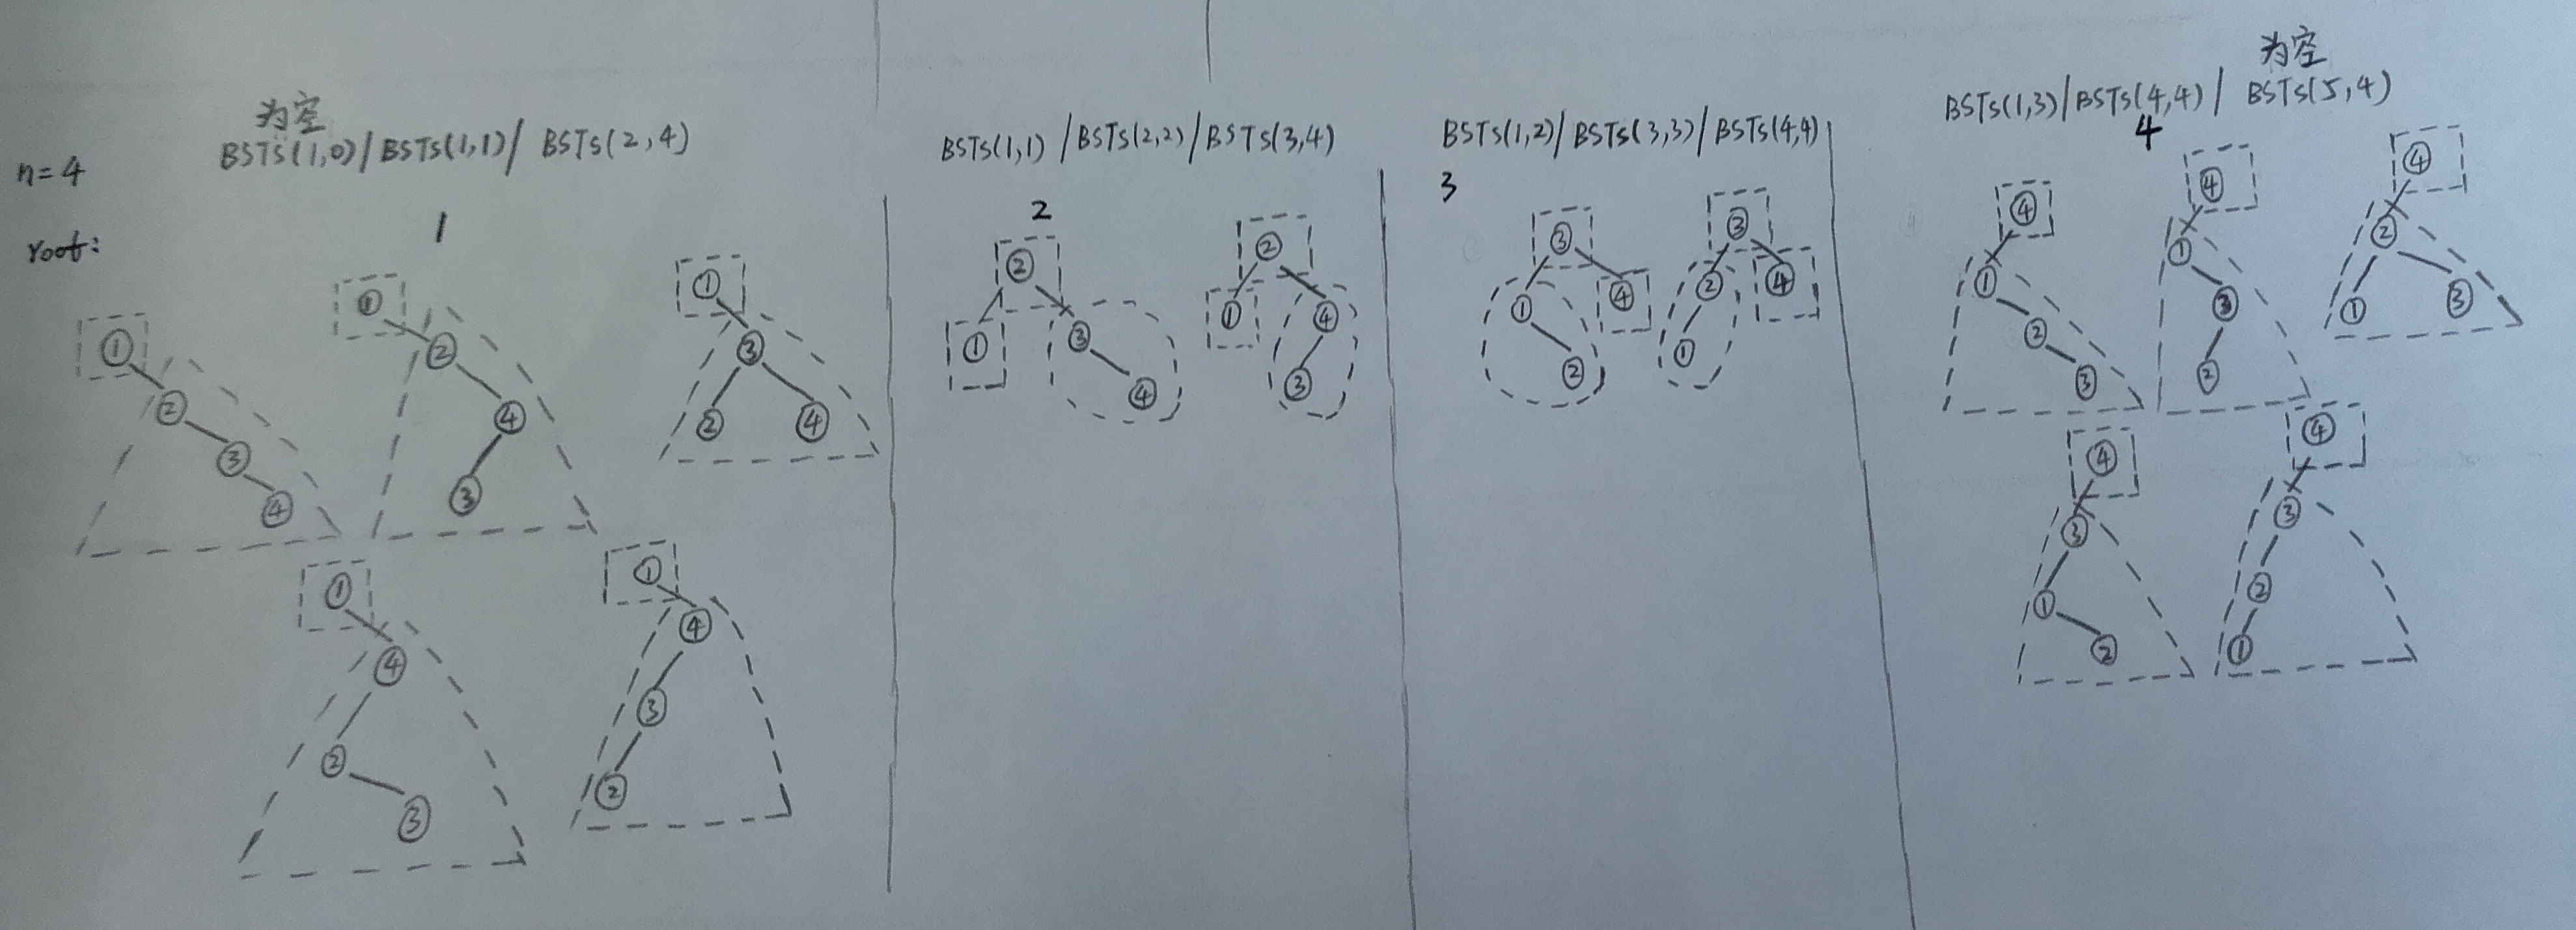 为空
BSTs(1,0)/BSTs(1,1)/ BSTs(2,4)
n=4
root:
1
①
②
③
④
①
②
④
③
①
③
② ④
①
④
②
③
①
④
③
②
BSTs(1,1) /BSTs(2,2)/BSTs(3,4)
2
②
① ③
④
②
① ④
③
BSTs(1,2)/BSTs(3,3)/BSTs(4,4)
3
③
① ④
②
③
② ④
①
为空
BSTs(1,3)/BSTs(4,4)/ BSTs(5,4)
4
④
①
②
③
④
①
③
②
④
②
① ③
④
③
①
②
④
③
②
①